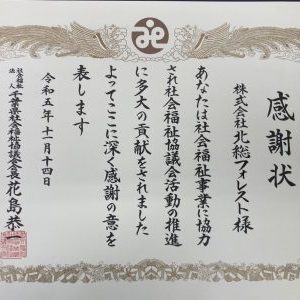 感謝状
株式会社北総フォレスト様
あなたは社会福祉事業に協力
され社会福祉協議会活動の推進
に多大の貢献をされました
よってここに深く感謝の意を
表します
令和五年十一月十四日
社会福祉法人 千葉県社会福祉協議会会長 花島恭